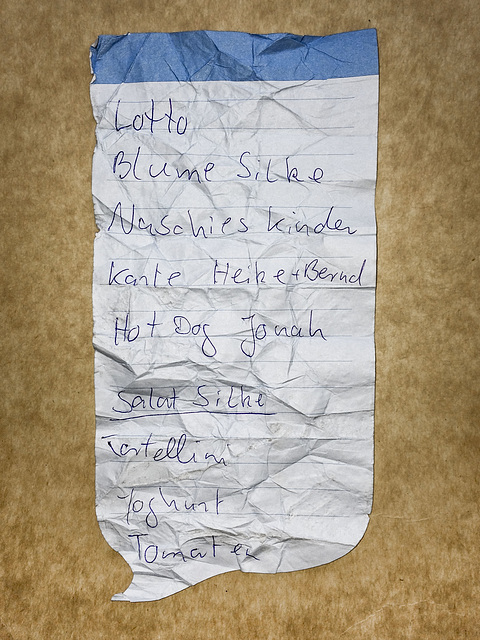 Lotto
Blume Silke
Naschies Kinder
Karte Heike + Bernd
Hot Dog Jonah
Salat Silke
Tortellini
Joghurt
Tomaten